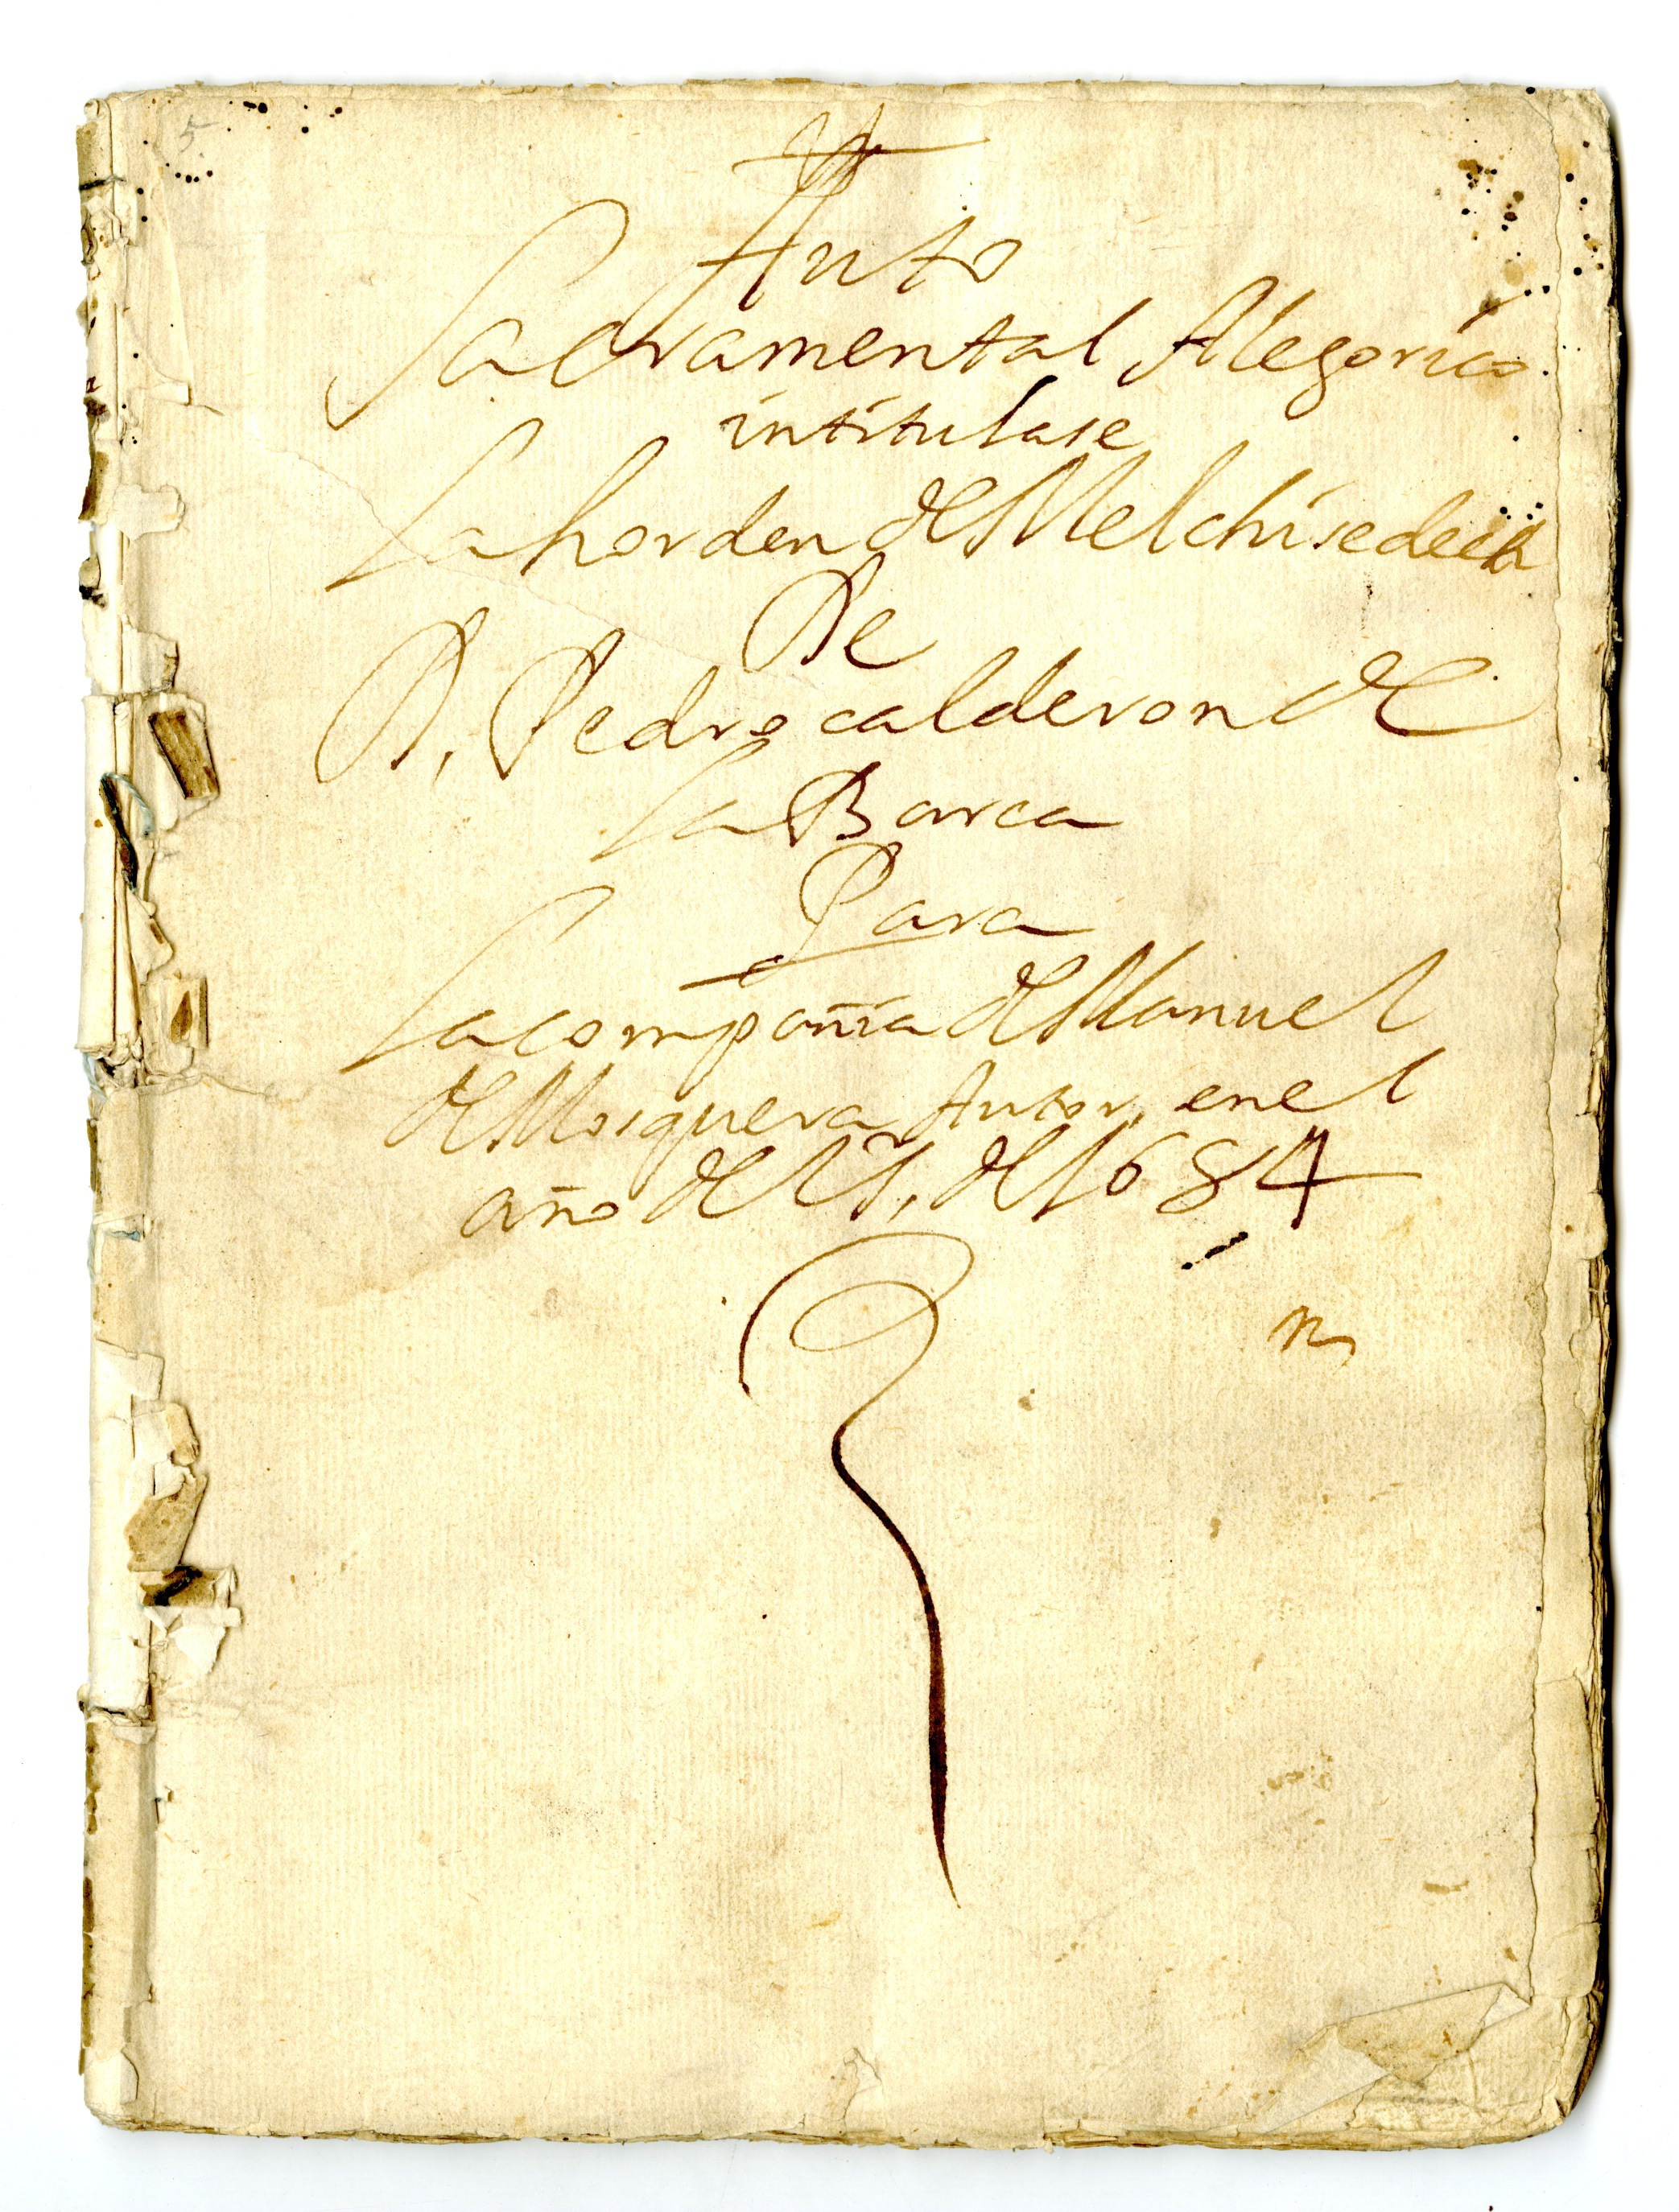 5
Auto
Sacramental Alegorico
intitulase
La horden de Melchisedech
De
D, Pedro calderon de
la Barca
Para
La compañia de Manuel
de Mosquera Autor, en el
año de de 1684